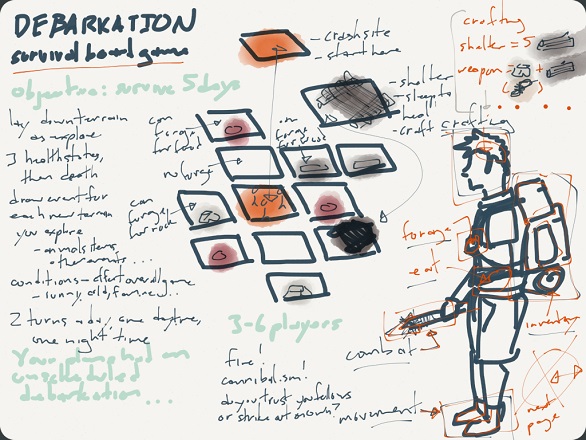 DEBARKATION
survival board game
objective: survive 5 days
lay down terrain
as explore
3 health states,
then death
draw event for
each new terrain
you explore
- animals, items,
other events...
conditions - affect overall game
2 turns a day, one daytime,
one night time
Your plane had an
unscheduled
debarkation...
- crash site
- start here
- shelter
- sleep to
heal
- craft
can
forage
for food
no forage
can
forage
for rock
3-6 players
fire!
cannibalism!
do you trust your fellows
or strike out on own?
crafting
shelter = 5
weapon =
+
crafting
forage
eat
combat
inventory
movement
next
page